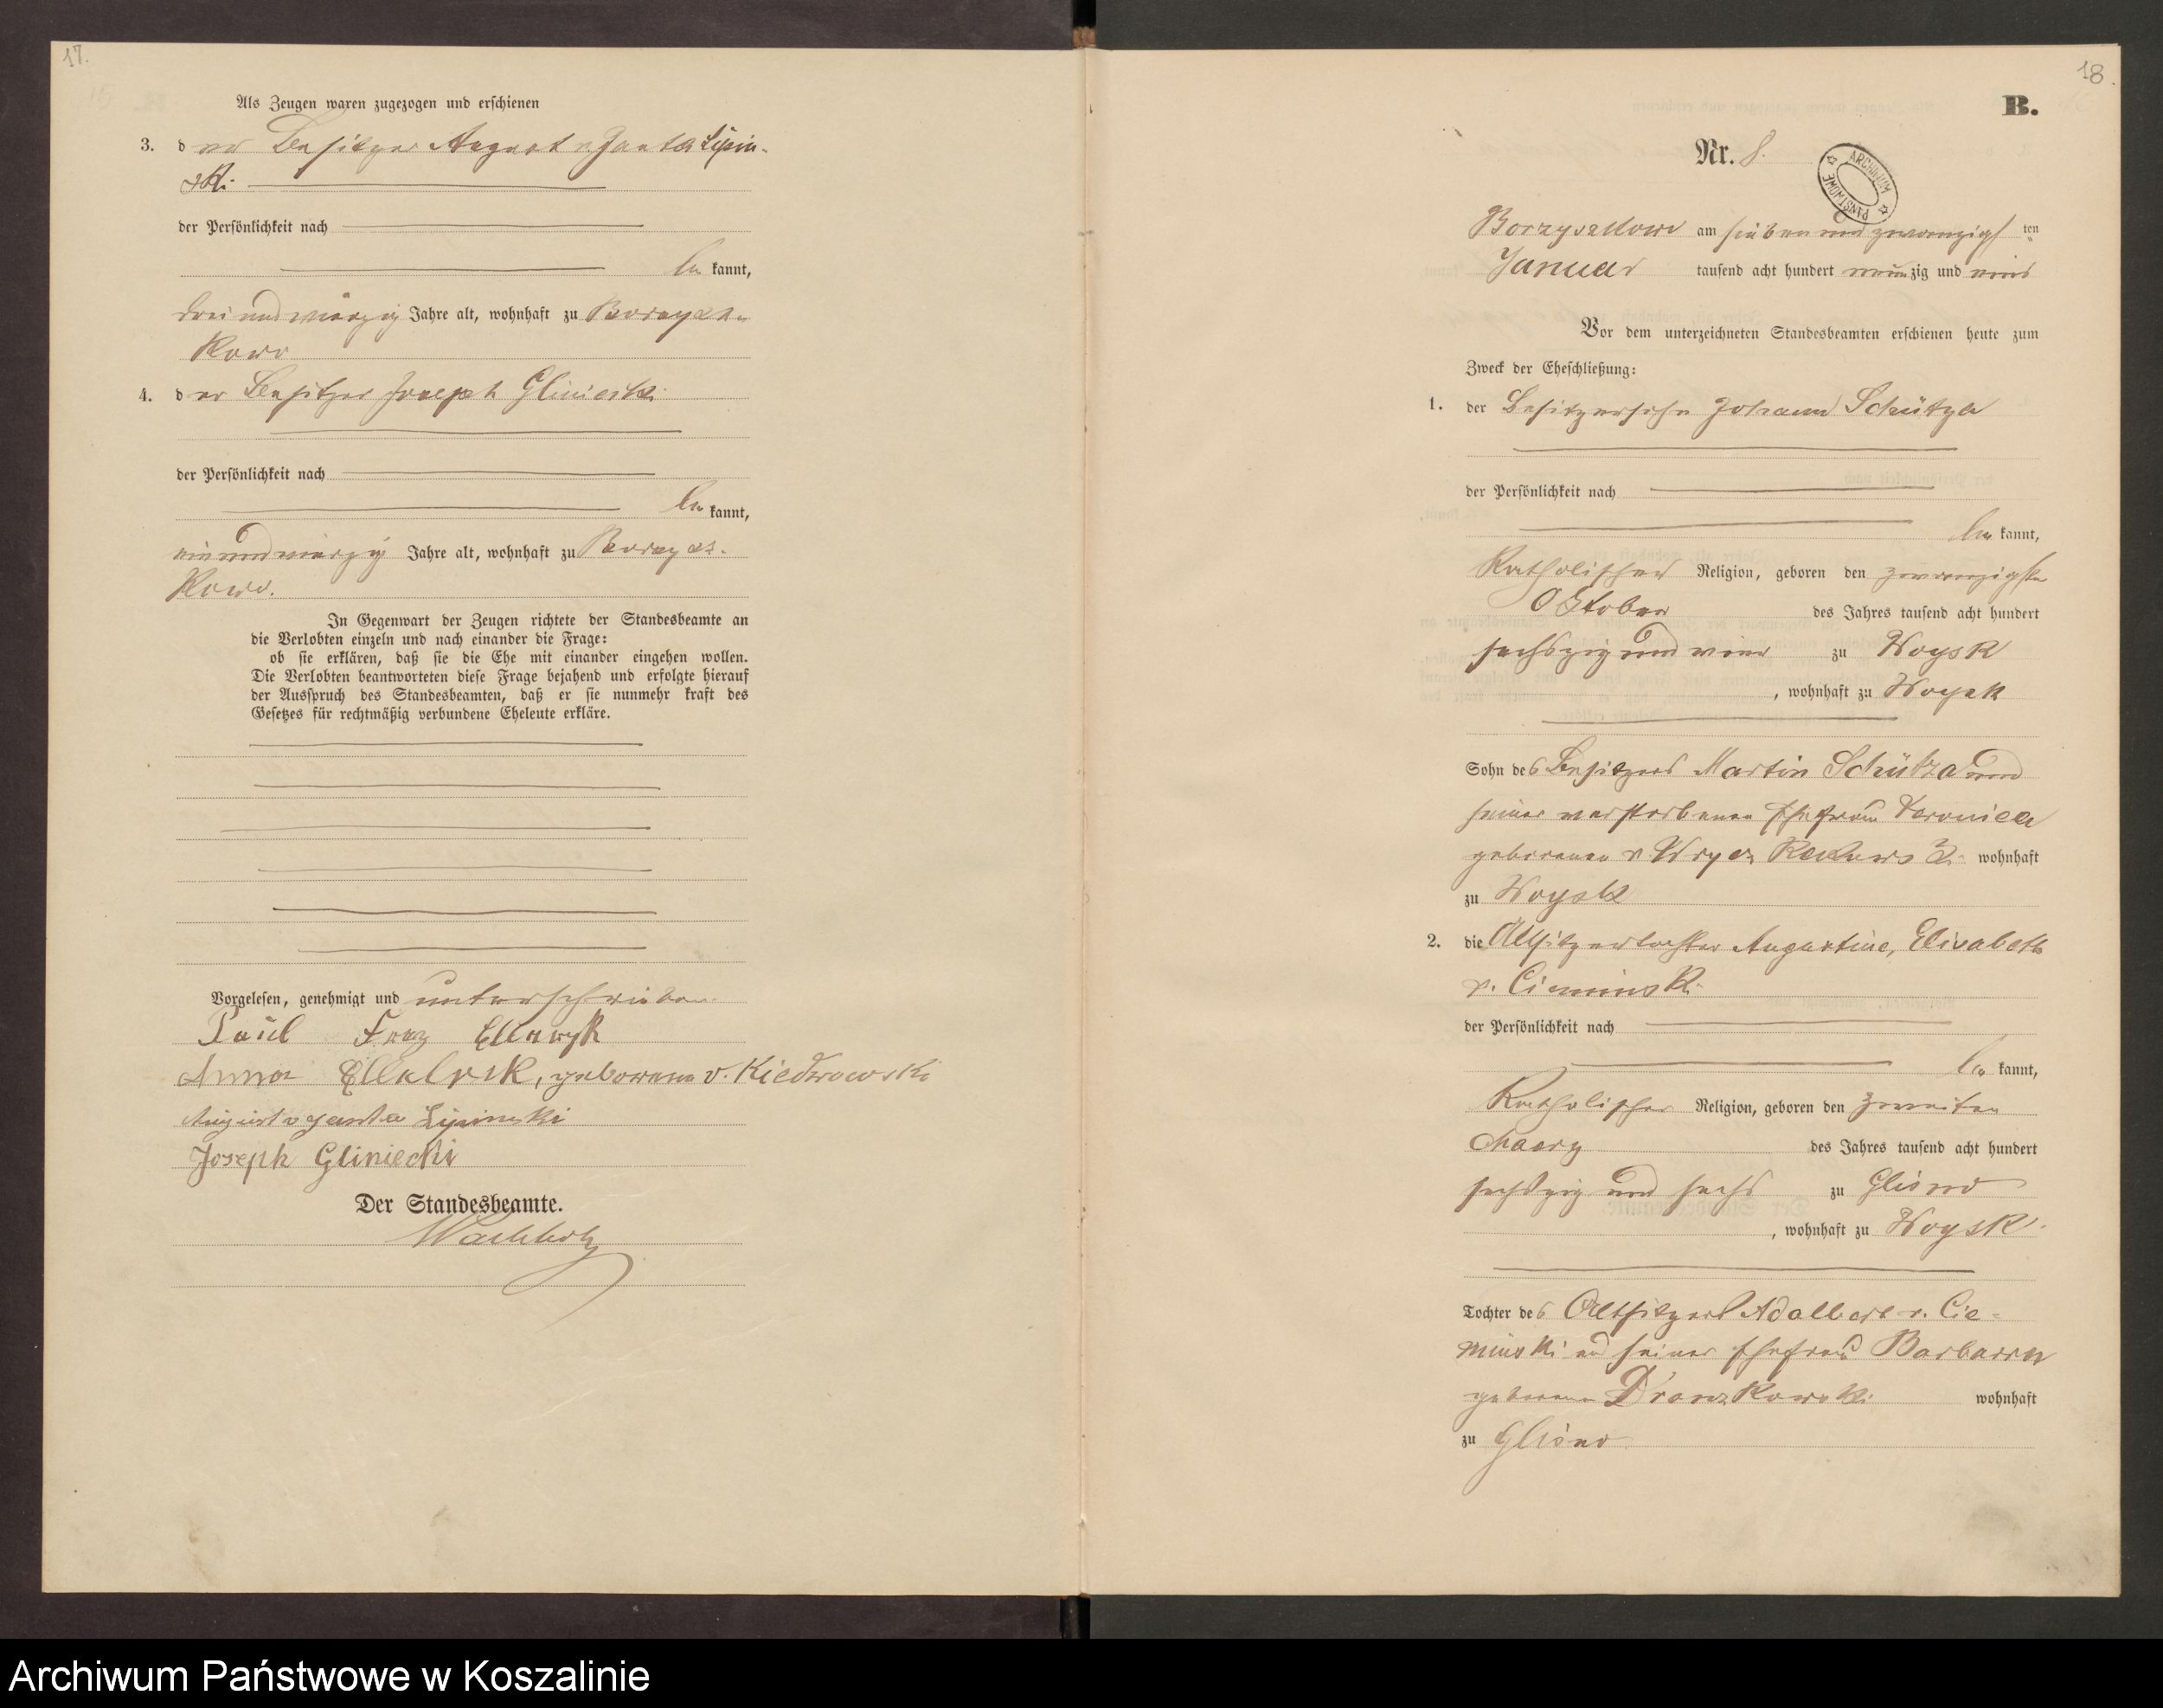 17.
Als Zeugen waren zugezogen und erschienen
3. der Besitzer August v. Janta Lipin-
ski
der Persönlichkeit nach
be kannt,
drei und vierzig Jahre alt, wohnhaft zu Borzysz-
kowo
4. der Besitzer Joseph Gliniecki
der Persönlichkeit nach
be kannt,
ein und vierzig Jahre alt, wohnhaft zu Borzysz-
kowo.
In Gegenwart der Zeugen richtete der Standesbeamte an
die Verlobten einzeln und nach einander die Frage:
ob sie erklären, daß sie die Ehe mit einander eingehen wollen.
Die Verlobten beantworteten diese Frage bejahend und erfolgte hierauf
der Ausspruch des Standesbeamten, daß er sie nunmehr kraft des
Gesetzes für rechtmäßig verbundene Eheleute erkläre.
Vorgelesen, genehmigt und unterschrieben
Paul Franz
Anna, geborene v. Kiedrowski
August v Janta Lipinski
Joseph Gliniecki
Der Standesbeamte.
Wachholz
18.
B.
Nr. 8.
ARCHIWUM PAŃSTWOWE
Borzyszkowo am sieben und zwanzigs ten
Januar tausend acht hundert neunzig und eins
Vor dem unterzeichneten Standesbeamten erschienen heute zum
Zweck der Eheschließung:
1. der Besitzersohn Johann Schütza
der Persönlichkeit nach
be kannt,
Katholischer Religion, geboren den zwanzigsten
Oktober des Jahres tausend acht hundert
sechszig und vier zu Woysk
, wohnhaft zu Woysk
Sohn des Besitzers Martin Schütza und
seiner verstorbenen Ehefrau Veronica
geborenen v. wohnhaft
zu Woysk
2. die Altsitzertochter Augustine, Elisabeth
v. Cieminski
der Persönlichkeit nach
be kannt,
Katholischer Religion, geboren den zweiten
Maerz des Jahres tausend acht hundert
sechszig und sechs zu Glisno
, wohnhaft zu Woysk
Tochter des Altsitzers Adalbert v. Cie-
minski und seiner Ehefrau Barbara
geborenen Dronzkowski wohnhaft
zu Glisno
Archiwum Państwowe w Koszalinie